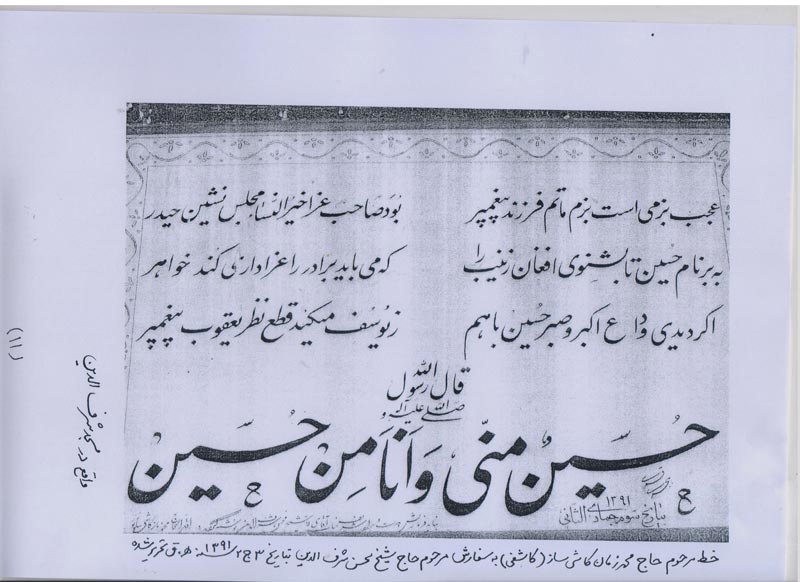 عجب بزمی است بزم ماتم فرزند پیغمبر بود صاحب عزا خیرالنسا مجلس نشین حیدر
به بر نام حسین تا بشنوی افغان زینب را که می باید برادر را عزاداری کند خواهر
اگر دیدی وداع اکبر و صبر حسین با هم زیوسف میکند قطع نظر یعقوب پیغمبر
قال رسول الله
صلی الله علیه و آله
حسین منی و انا من حسین
بتاریخ سوم جمادی الثانی
۱۳۹۱
خط مرحوم حاج محمد زمان کاشی ساز (کاشفی) به سفارش مرحوم حاج شیخ محسن شرف الدین بتاریخ ۳ ج ۲ ۱۳۹۱ ه.ق تحریر شده
واقع در مسجد شرف الدین
(۱۱)